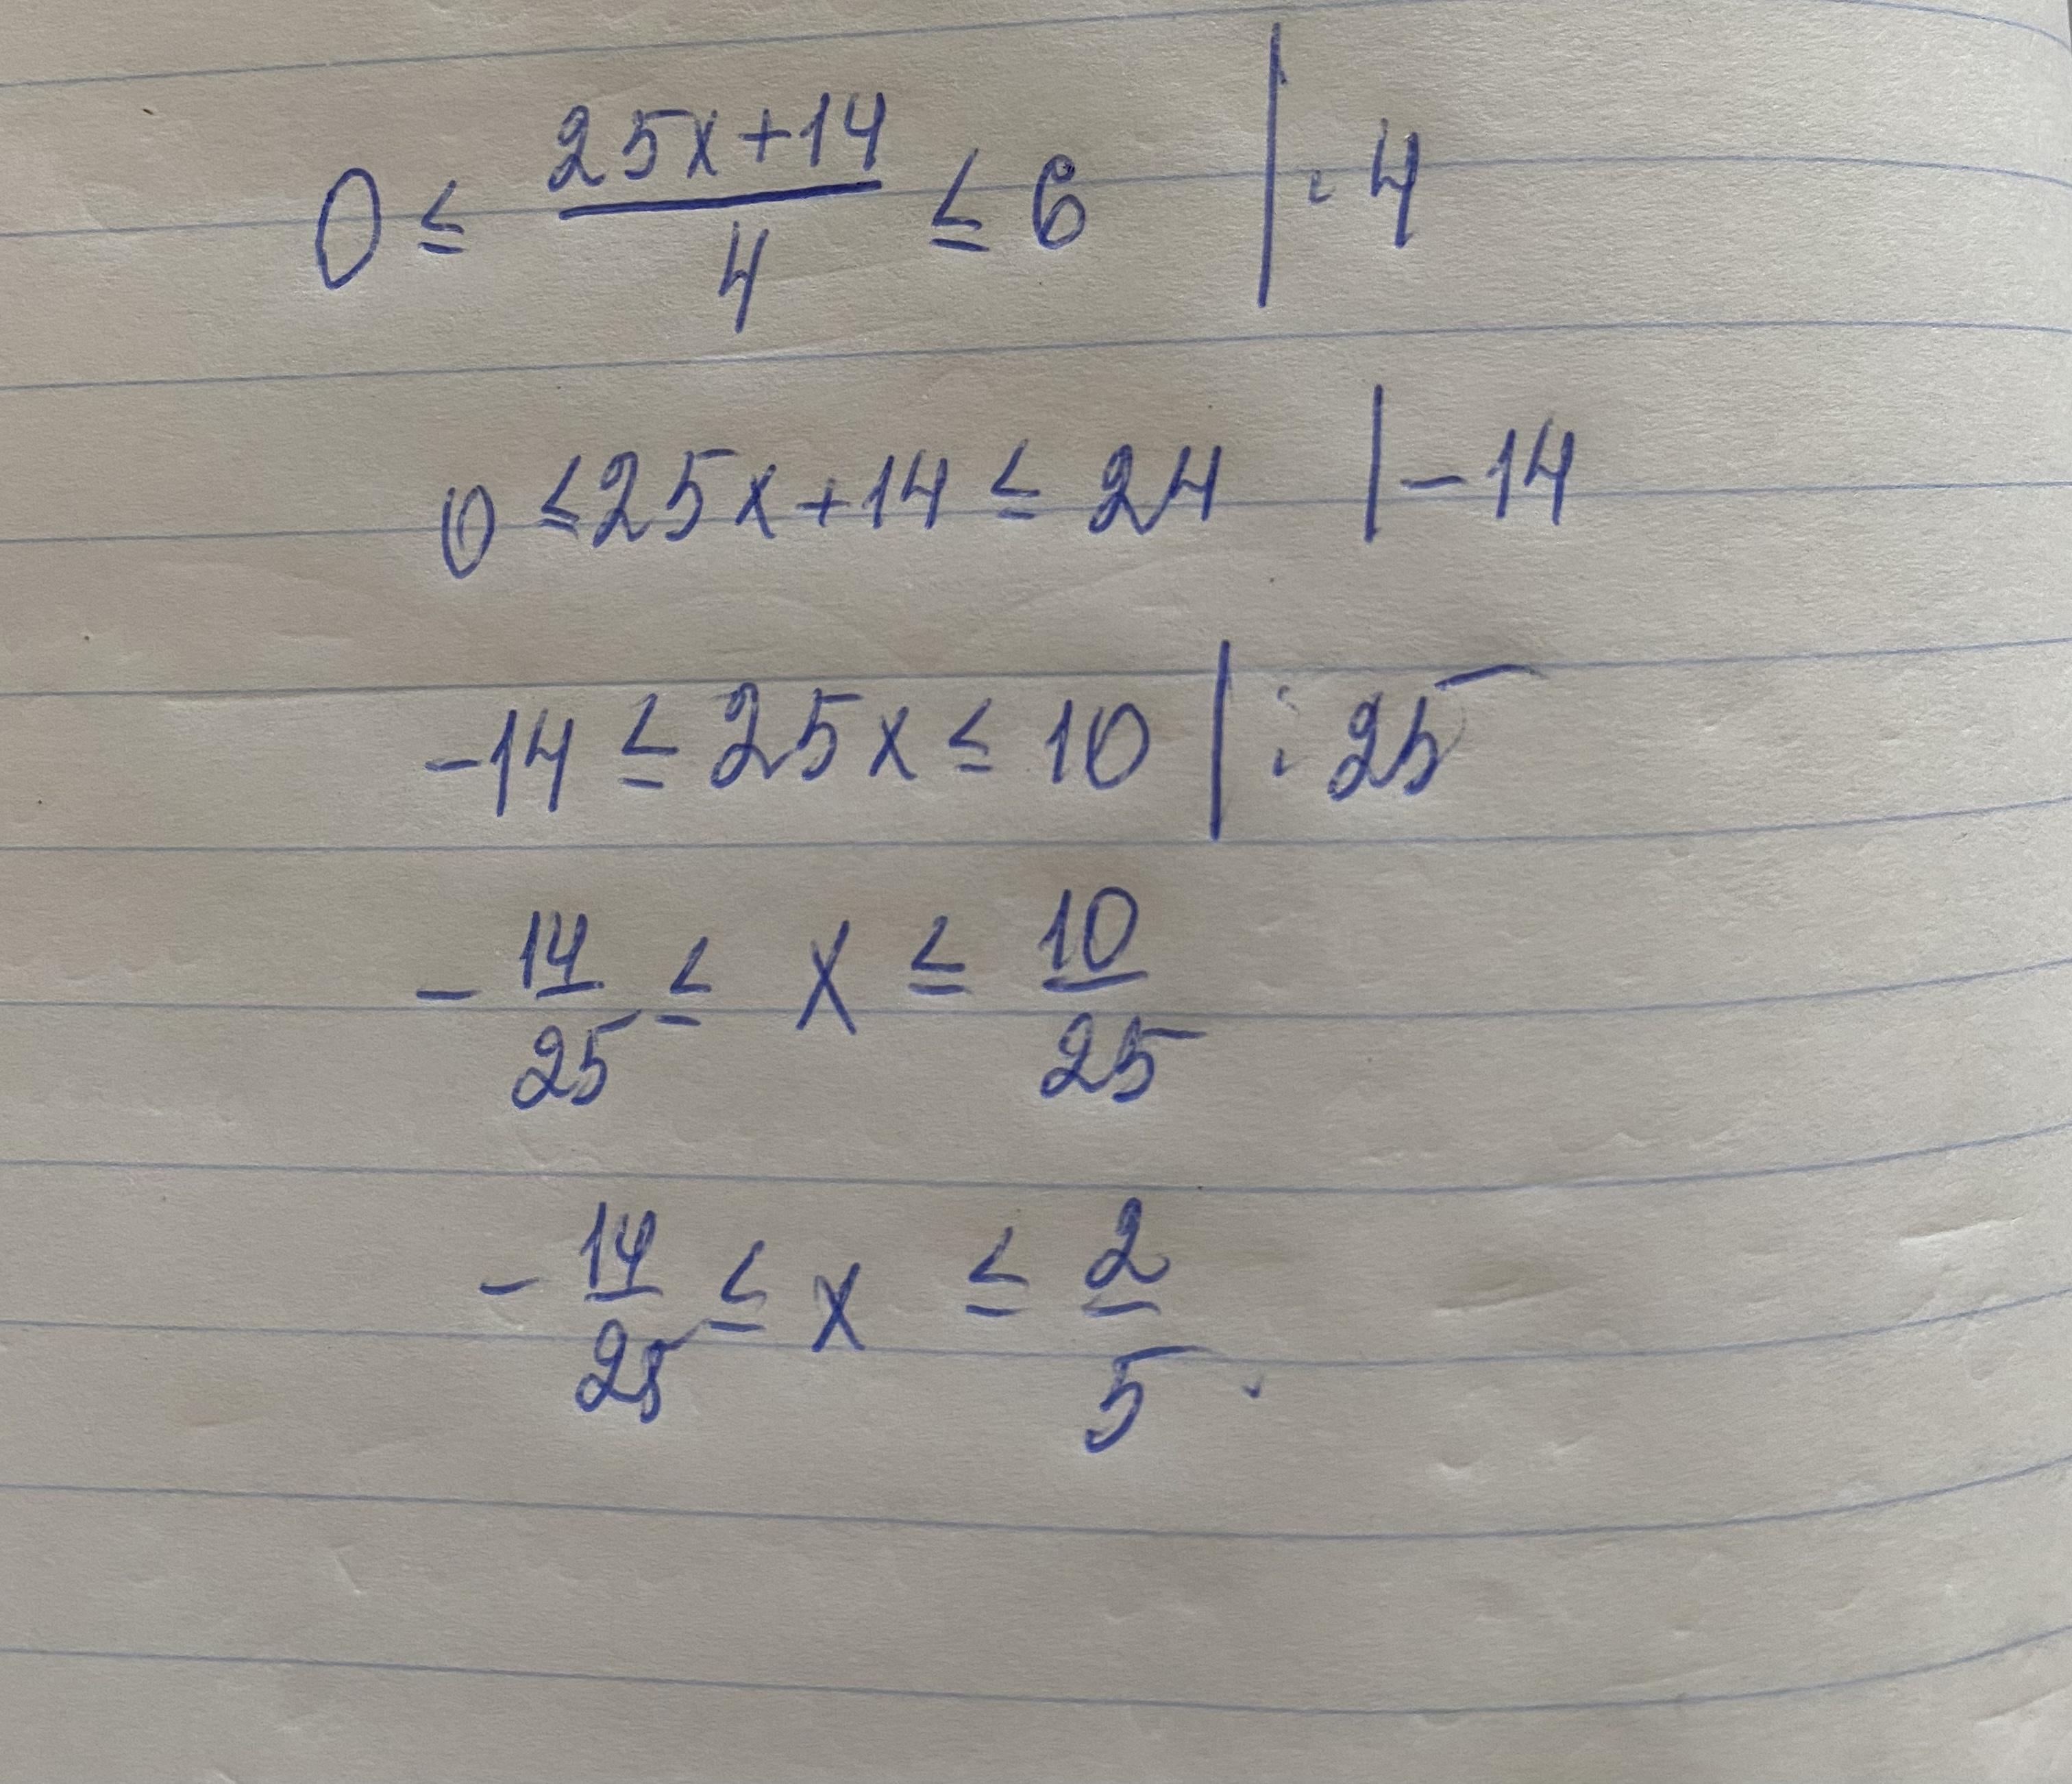 0 ≤ (25x+14)/4 ≤ 6 | · 4
0 ≤ 25x+14 ≤ 24 | − 14
−14 ≤ 25x ≤ 10 | : 25
−14/25 ≤ x ≤ 10/25
−14/25 ≤ x ≤ 2/5.